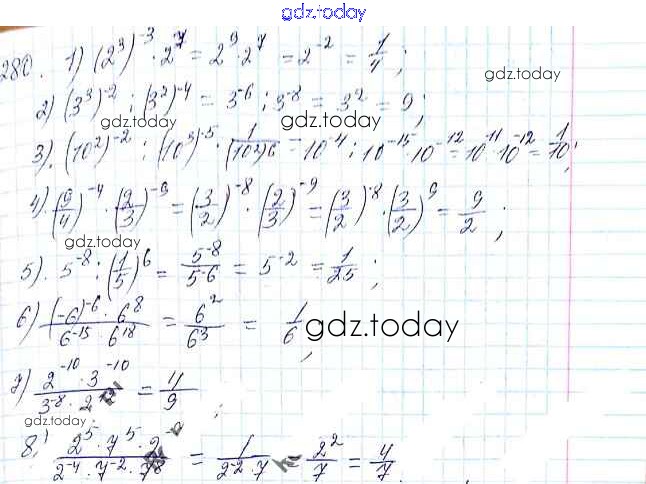 gdz.today
280. 1) (2³)⁻³ · 2⁷ = 2⁹ · 2⁷ = 2⁻² = 1/4;
gdz.today
2) (3³)⁻² : (3²)⁻⁴ = 3⁻⁶ : 3⁻⁸ = 3² = 9;
gdz.today gdz.today
3). (10²)⁻² : (10³)⁻⁵ · 1/(10²)6 = 10⁻⁴ : 10⁻¹⁵ · 10⁻¹² = 10¹¹ · 10⁻¹² = 1/10;
4). (9/4)⁻⁴ · (2/3)⁻⁹ = (3/2)⁻⁸ · (2/3)⁻⁹ = (3/2)⁻⁸ · (3/2)⁹ = 9/2;
gdz.today
5). 5⁻⁸ : (1/5)⁶ = 5⁻⁸/5⁻⁶ = 5⁻² = 1/25;
6) (-6)⁻⁶ · 6⁸ / 6⁻¹⁵ · 6¹⁸ = 6²/6³ = 1/6;
gdz.today
7) 2⁻¹⁰ · 3⁻¹⁰ / 3⁻⁸ · 2 = 4/9;
gdz.today
8) 2⁵ · 7⁵ · 2 / 2⁻⁴ · 7⁻² · 7⁸ = 1/2⁻² · 7 = 2²/7 = 4/7.